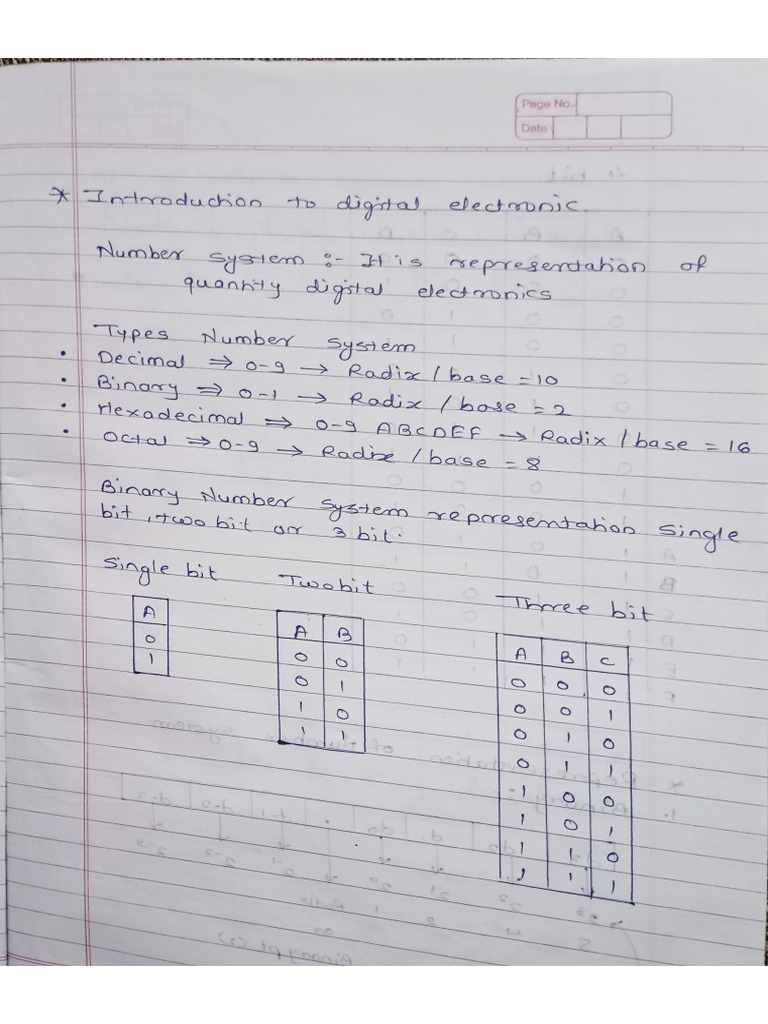 Page No.
Date
* Introduction to digital electronic.
Number system :- It is representation of
quantity digital electronics
Types Number System
• Decimal ⇒ 0-9 → Radix / base = 10
• Binary ⇒ 0-1 → Radix / base = 2
• Hexadecimal ⇒ 0-9 ABCDEF → Radix / base = 16
• Octal ⇒ 0-9 → Radix / base = 8
Binary Number System representation Single
bit, two bit or 3 bit.
Single bit Two bit Three bit
A
0
1
A B
0 0
0 1
1 0
1 1
A B C
0 0 0
0 0 1
0 1 0
0 1 1
1 0 0
1 0 1
1 1 0
1 1 1